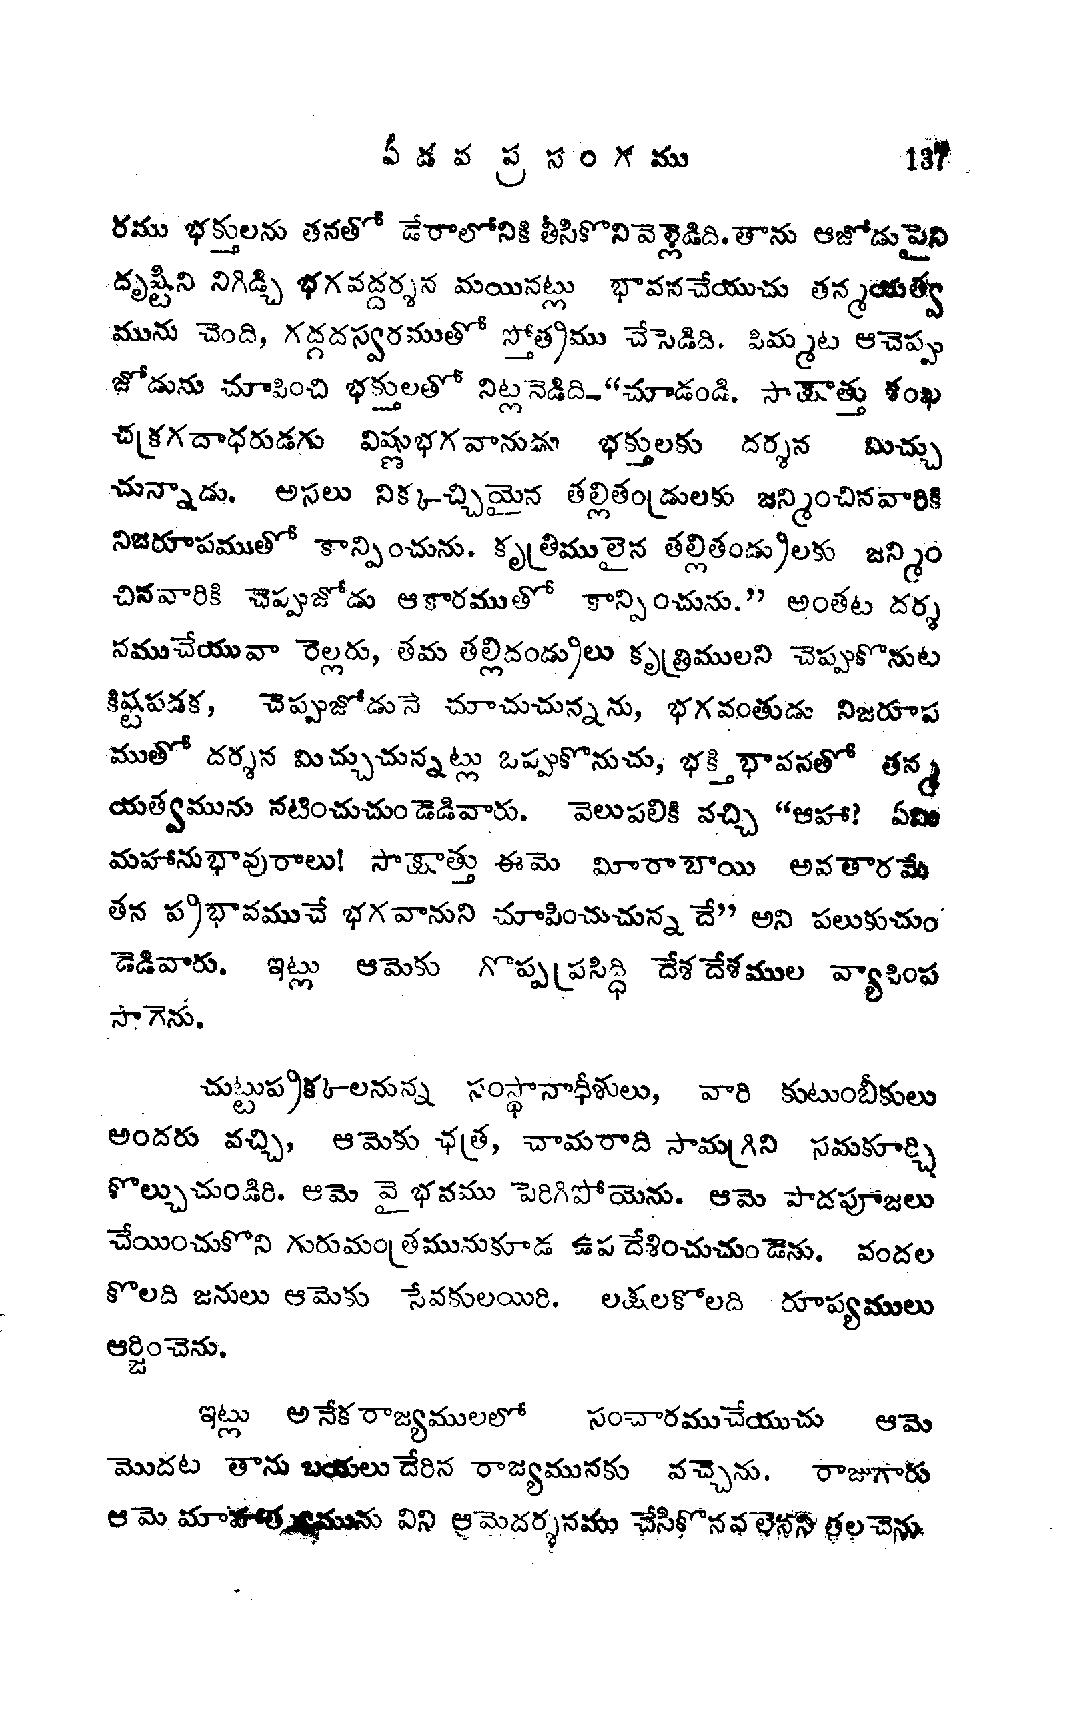 పీడవ ప్రసంగము 137
రము భక్తులను తనతో డేరాలోనికి తీసికొనివెళ్లెడిది. తాను ఆజోడుపైని
దృష్టిని నిగిడ్చి భగవద్దర్శన మయినట్లు భావనచేయుచు తన్మయత్వ
మును చెంది, గద్గదస్వరముతో స్తోత్రము చేసెడిది. పిమ్మట ఆచెప్పు
జోడును చూపించి భక్తులతో నిట్లనెడిది–“చూడండి. సాక్షాత్తు శంఖ
చక్రగదాధరుడగు విష్ణుభగవానుడూ భక్తులకు దర్శన మిచ్చు
చున్నాడు. అసలు నిక్కచ్చియైన తల్లితండ్రులకు జన్మించినవారికి
నిజరూపముతో కాన్పించును. కృత్రిములైన తల్లితండ్రులకు జన్మిం
చినవారికి చెప్పుజోడు ఆకారముతో కాన్పించును.” అంతట దర్శ
నముచేయువా రెల్లరు, తమ తల్లిదండ్రులు కృత్రిములని చెప్పుకొనుట
కిష్టపడక, చెప్పుజోడునే చూచుచున్నను, భగవంతుడు నిజరూప
ముతో దర్శన మిచ్చుచున్నట్లు ఒప్పుకొనుచు, భక్తిభావనతో తన్మ
యత్వమును నటించుచుండెడివారు. వెలుపలికి వచ్చి “ఆహా! ఏమి
మహానుభావురాలు! సాక్షాత్తు ఈమె మీరాబాయి అవతారమే
తన ప్రభావముచే భగవానుని చూపించుచున్నదే” అని పలుకుచుం
డెడివారు. ఇట్లు ఆమెకు గొప్పప్రసిద్ధి దేశదేశముల వ్యాపింప
సాగెను.
చుట్టుప్రక్కలనున్న సంస్థానాధీశులు, వారి కుటుంబీకులు
అందరు వచ్చి, ఆమెకు ఛత్ర, చామరాది సామగ్రిని సమకూర్చి
కొల్చుచుండిరి. ఆమె వైభవము పెరిగిపోయెను. ఆమె పాదపూజలు
చేయించుకొని గురుమంత్రమునుకూడ ఉపదేశించుచుండెను. వందల
కొలది జనులు ఆమెకు సేవకులయిరి. లక్షలకొలది రూప్యములు
ఆర్జించెను.
ఇట్లు అనేకరాజ్యములలో సంచారముచేయుచు ఆమె
మొదట తాను బయలుదేరిన రాజ్యమునకు వచ్చెను. రాజుగారు
ఆమె మాహాత్మ్యమును విని ఆమెదర్శనము చేసికొనవలెనని తలచెను